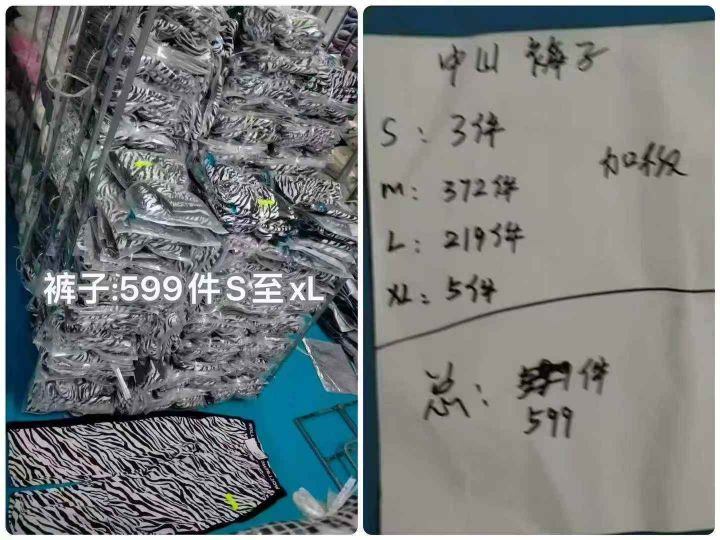 裤子:599件S至xL
中山 裤子
S：3件
加绒
M：372件
L：219件
XL：5件
总：件
599